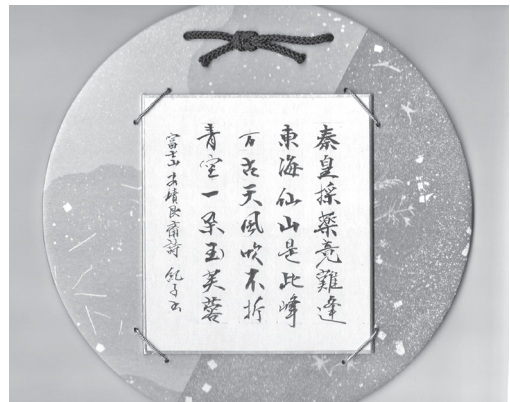 秦皇採藥竟難逢
東海仙山是此峰
万古天風吹不折
青空一朶玉芙蓉
富士山 安積艮齋詩 紀子書